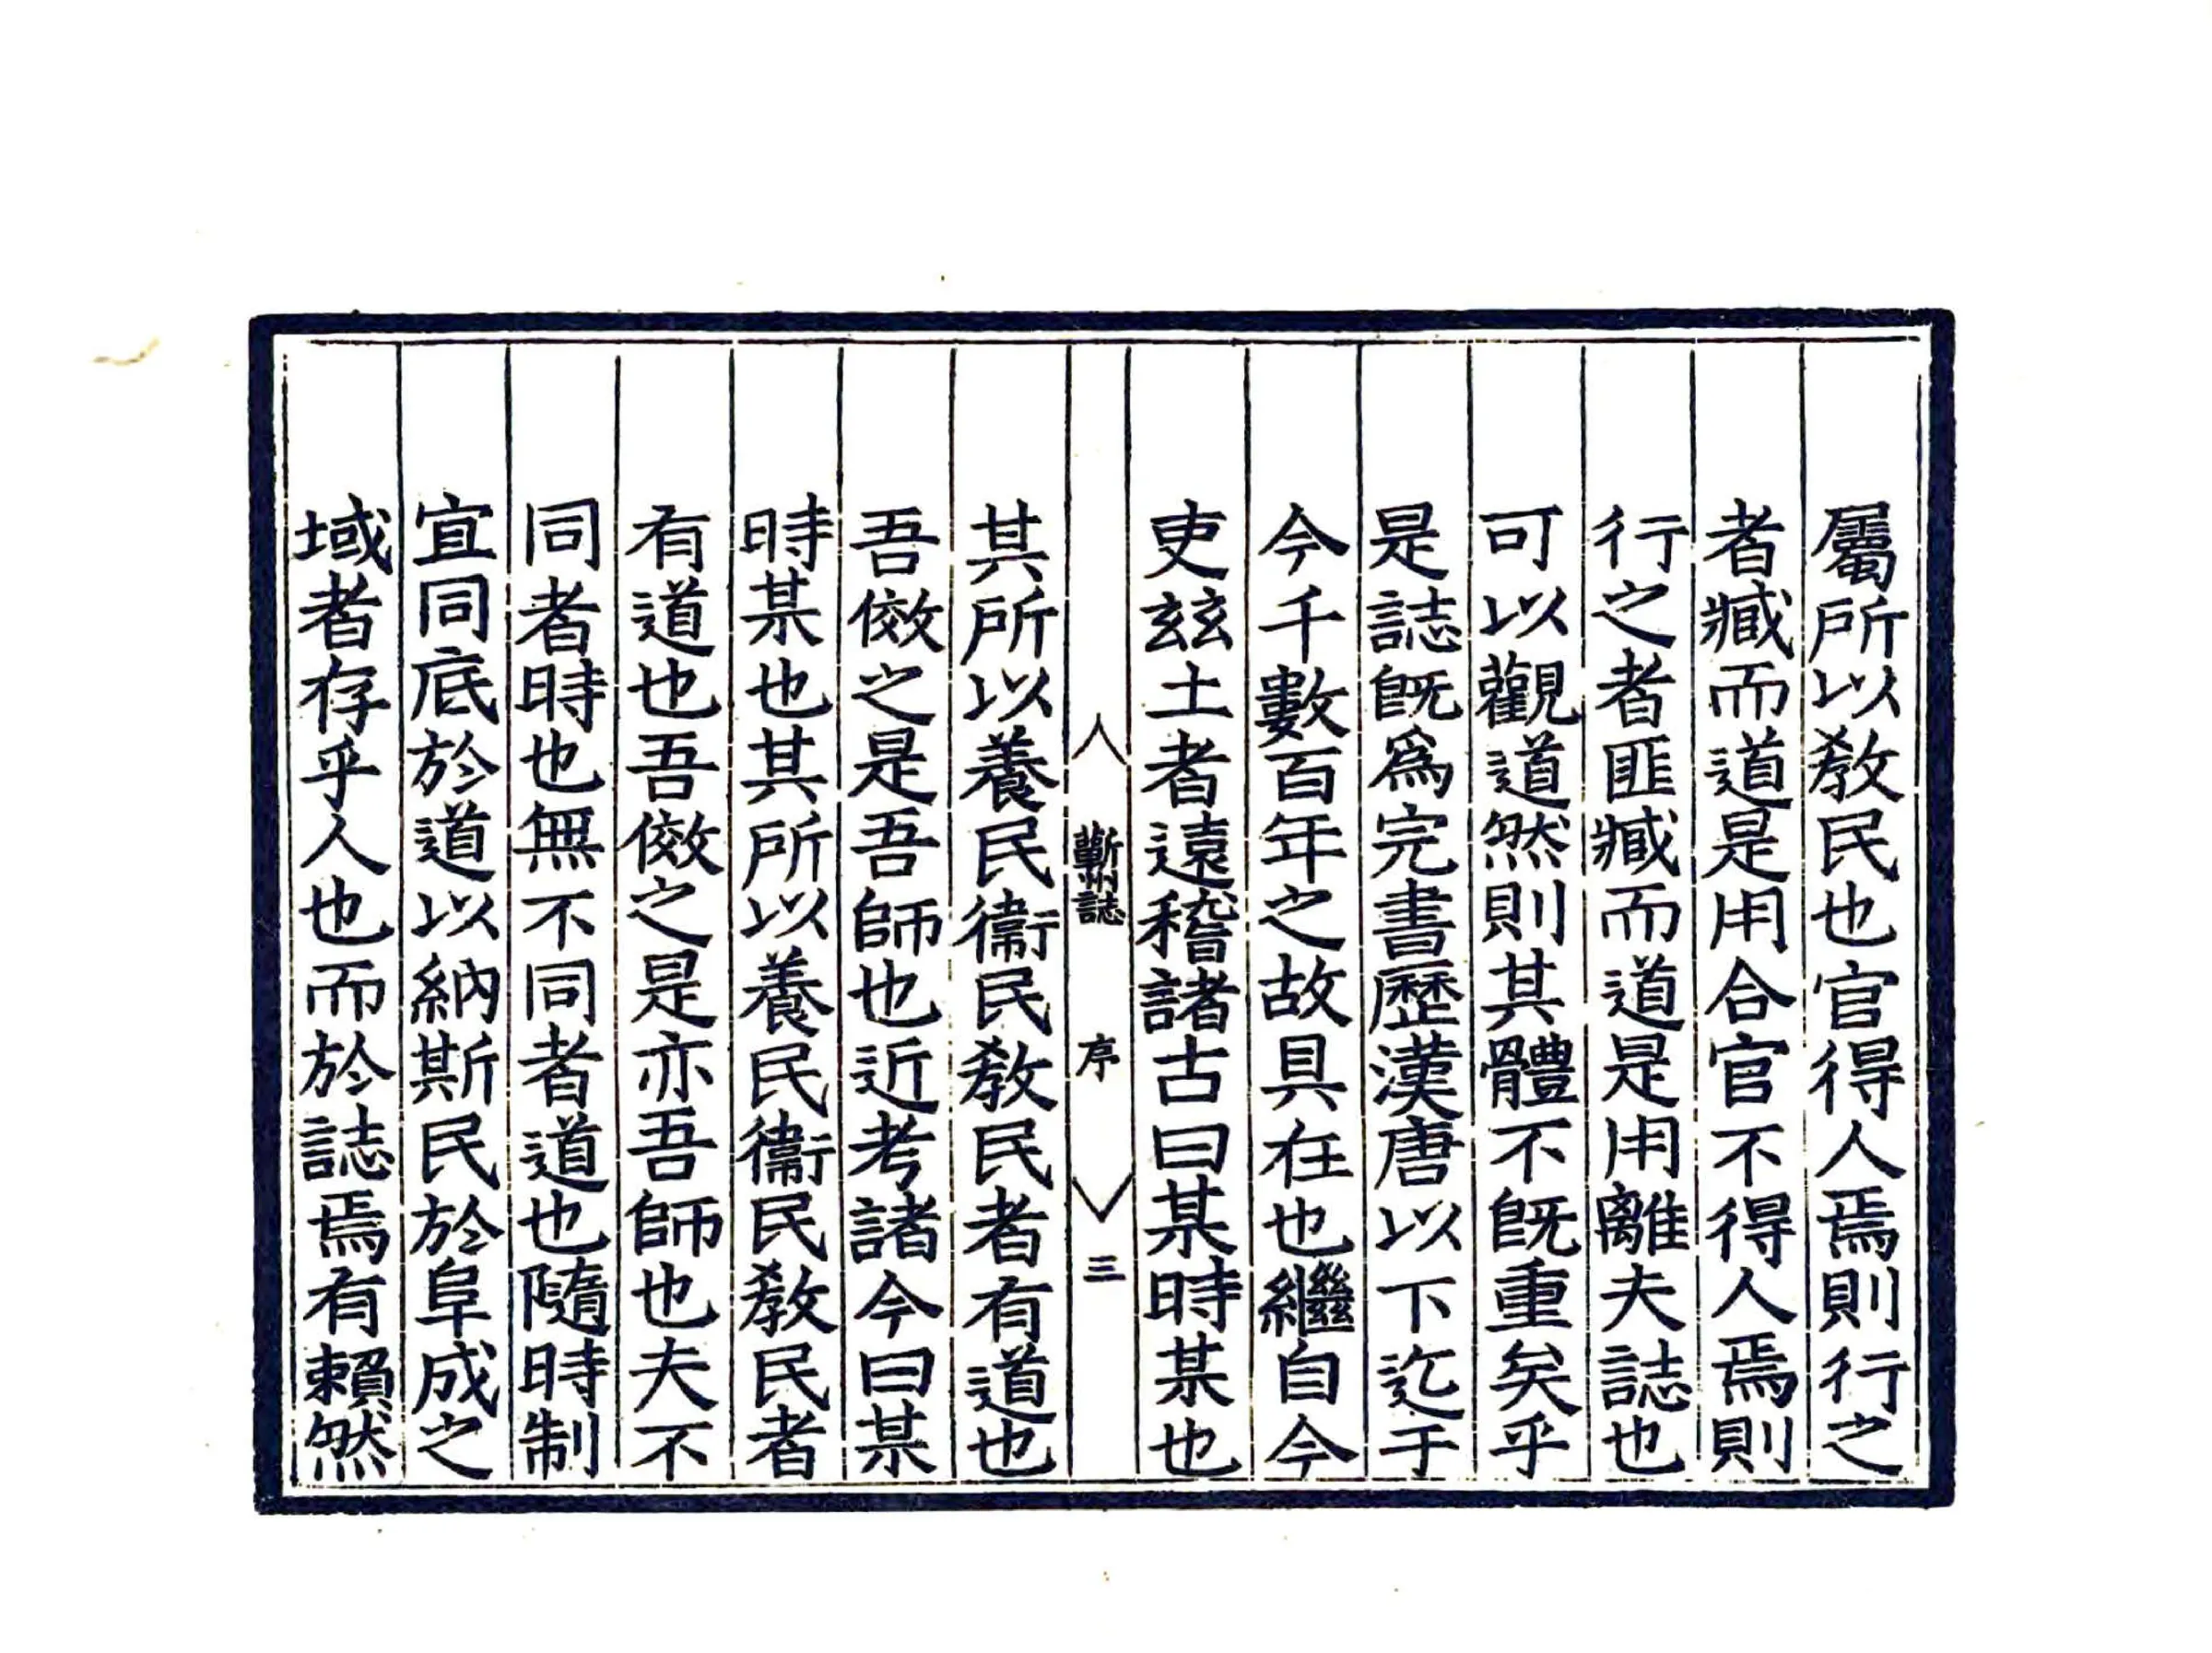 屬所以敎民也官得人焉則行之
者臧而道是用合官不得人焉則
行之者匪臧而道是用離夫誌也
可以觀道然則其體不旣重矣乎
是誌旣爲完書歷漢唐以下迄于
今千數百年之故具在也繼自今
吏玆土者遠稽諸古曰某時某也
蘄州誌 序 三
其所以養民衞民敎民者有道也
吾傚之是吾師也近考諸今曰某
時某也其所以養民衞民敎民者
有道也吾傚之是亦吾師也夫不
同者時也無不同者道也隨時制
宜同底於道以納斯民於阜成之
域者存乎人也而於誌焉有賴然